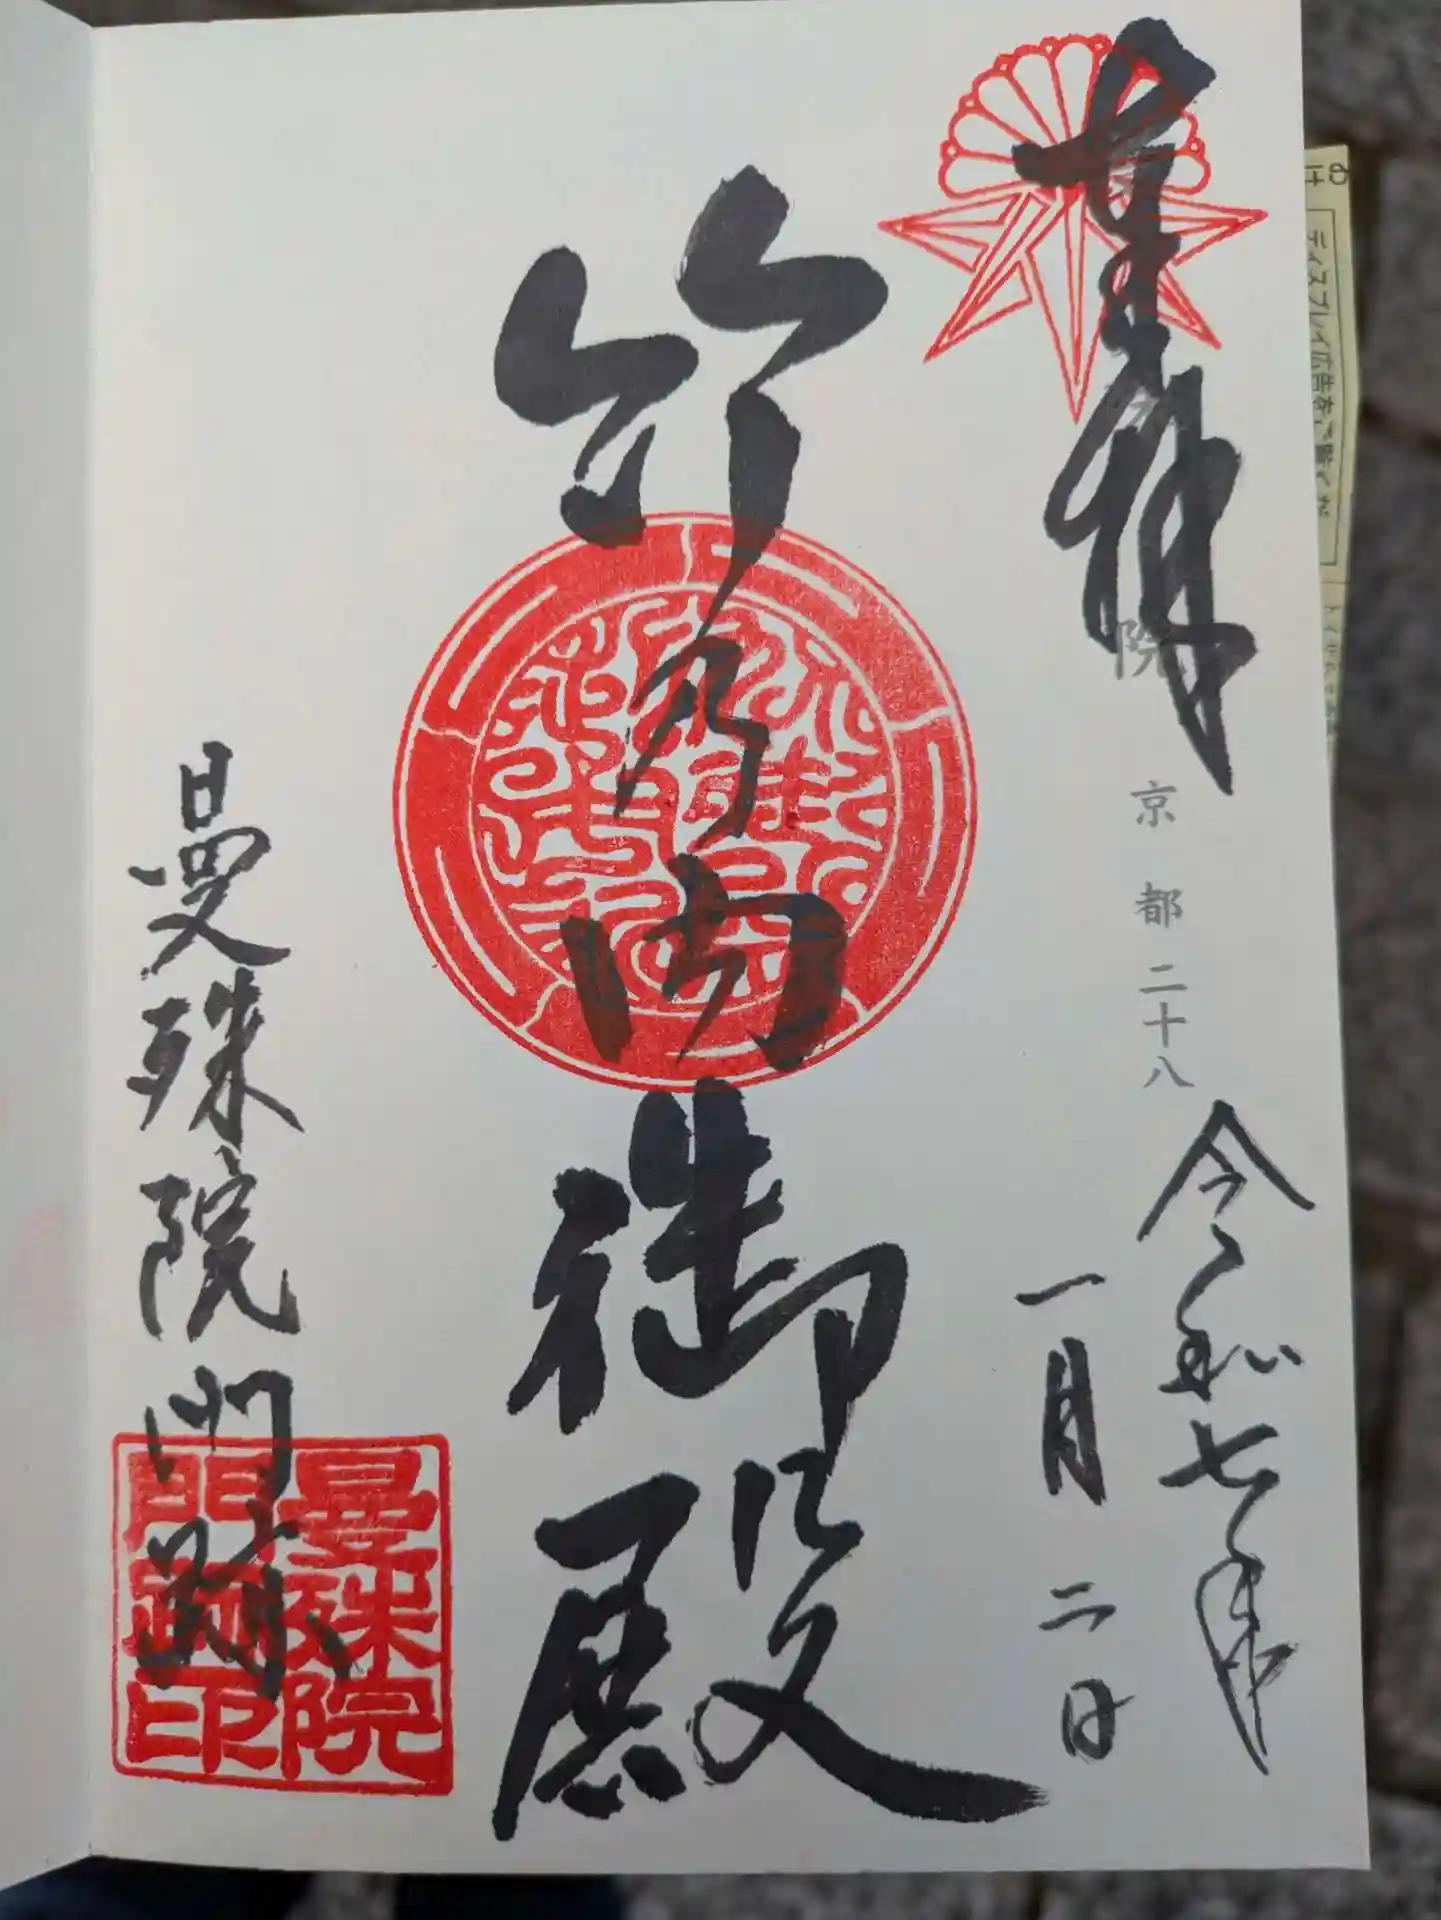 奉拝
院
京都二十八
令和七年
一月二日
竹乃内御殿
曼殊院門跡
曼殊院
門跡印
ディスプレイ広告をご覧くだ